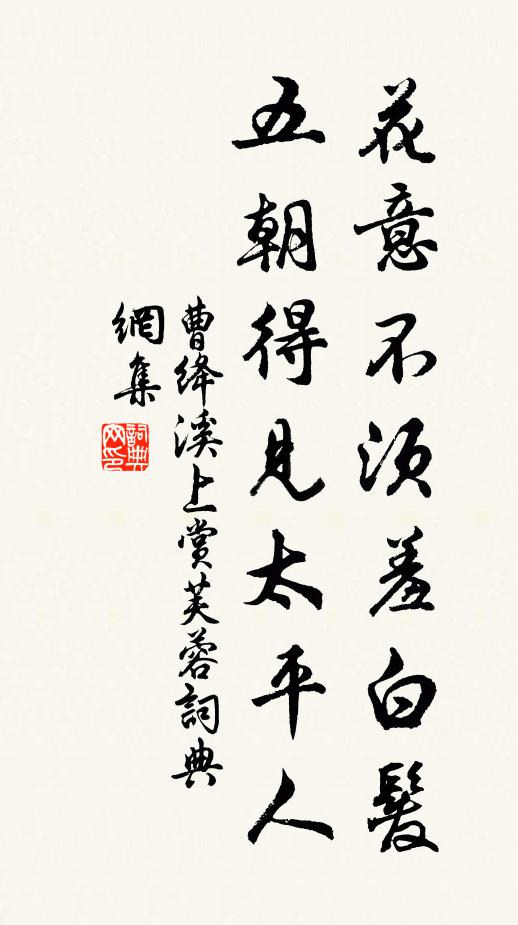 花意不須羞白髮
五朝得見太平人
曹絳溪上賞芙蓉詞典
網集
詞典
网印